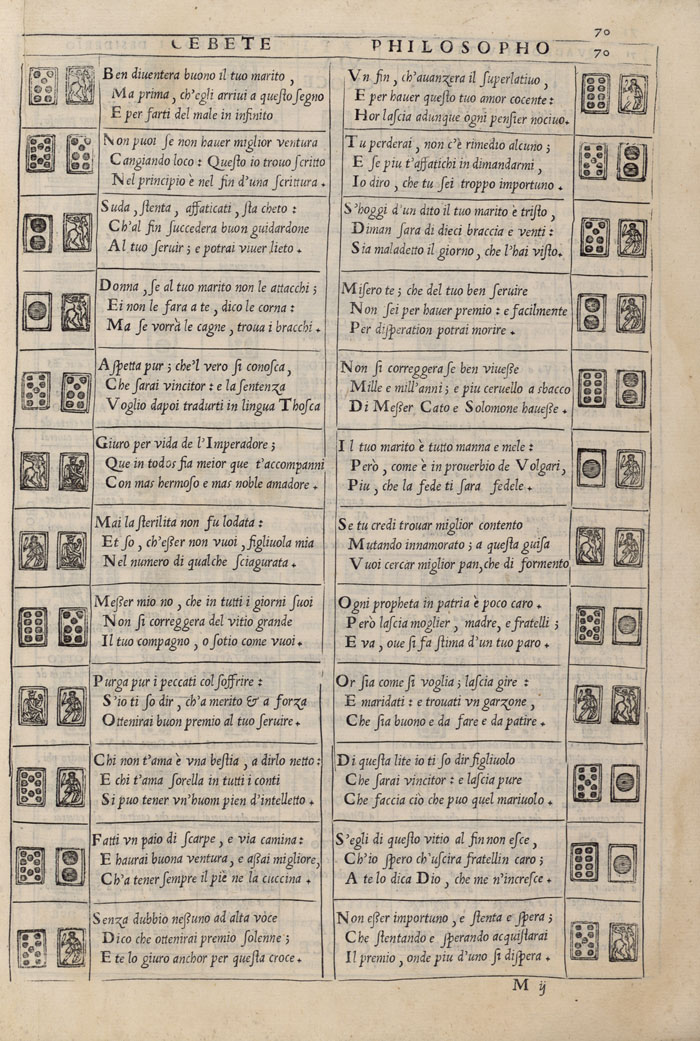 70
CEBETE PHILOSOPHO 70
Ben diuentera buono il tuo marito ,
Ma prima , ch'egli arriui a questo segno
E per farti del male in infinito
Non puoi se non hauer miglior ventura
Cangiando loco : Questo io trouo scritto
Nel principio è nel fin d'una scrittura .
Suda , stenta , affaticati , sta cheto :
Ch'al fin succedera buon guidardone
Al tuo seruir ; e potrai viuer lieto .
Donna , se al tuo marito non le attacchi ;
Ei non le fara a te , dico le corna :
Ma se vorrà le cagne , troua i bracchi .
Aspetta pur ; che'l vero si conosca ,
Che sarai vincitor : e la sentenza
Voglio dapoi tradurti in lingua Thosca
Giuro per vida de l'Imperadore ;
Que in todos fia meior que t'accompanni
Con mas hermoso e mas noble amadore .
Mai la sterilita non fu lodata :
Et so , ch'eßer non vuoi , figliuola mia
Nel numero di qualche sciagurata .
Meßer mio no , che in tutti i giorni suoi
Non si correggera del vitio grande
Il tuo compagno , o sotio come vuoi .
Purga pur i peccati col soffrire :
S'io ti so dir , ch'a merito & a forza
Ottenirai buon premio al tuo seruire .
Chi non t'ama è vna bestia , a dirlo netto :
E chi t'ama sorella in tutti i conti
Si puo tener vn'huom pien d'intelletto .
Fatti vn paio di scarpe , e via camina :
E haurai buona ventura , e aßai migliore ,
Ch'a tener sempre il piè ne la cuccina .
Senza dubbio neßuno ad alta voce
Dico che ottenirai premio solenne ;
E te lo giuro anchor per questa croce .
Vn fin , ch'auanzera il superlatiuo ,
E per hauer questo tuo amor cocente :
Hor lascia adunque ogni pensier nociuo .
Tu perderai , non c'è rimedio alcuno ;
E se piu t'affatichi in dimandarmi ,
Io diro , che tu sei troppo importuno .
S'hoggi d'un dito il tuo marito è tristo ,
Diman sara di dieci braccia e venti :
Sia maladetto il giorno , che l'hai visto .
Misero te ; che del tuo ben seruire
Non sei per hauer premio : e facilmente
Per disperation potrai morire .
Non si correggera se ben viueße
Mille e mill'anni ; e piu ceruello a sbacco
Di Meßer Cato e Solomone haueße .
Il tuo marito è tutto manna e mele :
Però , come è in prouerbio de Volgari ,
Piu , che la fede ti sara fedele .
Se tu credi trouar miglior contento
Mutando innamorato ; a questa guisa
Vuoi cercar miglior pan , che di formento
Ogni propheta in patria è poco caro .
Però lascia moglier , madre , e fratelli ;
E va , oue si fa stima d'un tuo paro .
Or sia come si voglia ; lascia gire :
E maridati : e trouati vn garzone ,
Che sia buono e da fare e da patire .
Di questa lite io ti so dir figliuolo
Che sarai vincitor : e lascia pure
Che faccia ciò che puo quel mariuolo .
S'egli di questo vitio al fin non esce ,
Ch'io spero ch'uscira fratellin caro ;
A te lo dica Dio , che me n'incresce .
Non eßer importuno , e stenta e spera ;
Che stentando e sperando acquistarai
Il premio , onde piu d'uno si dispera .
M ij